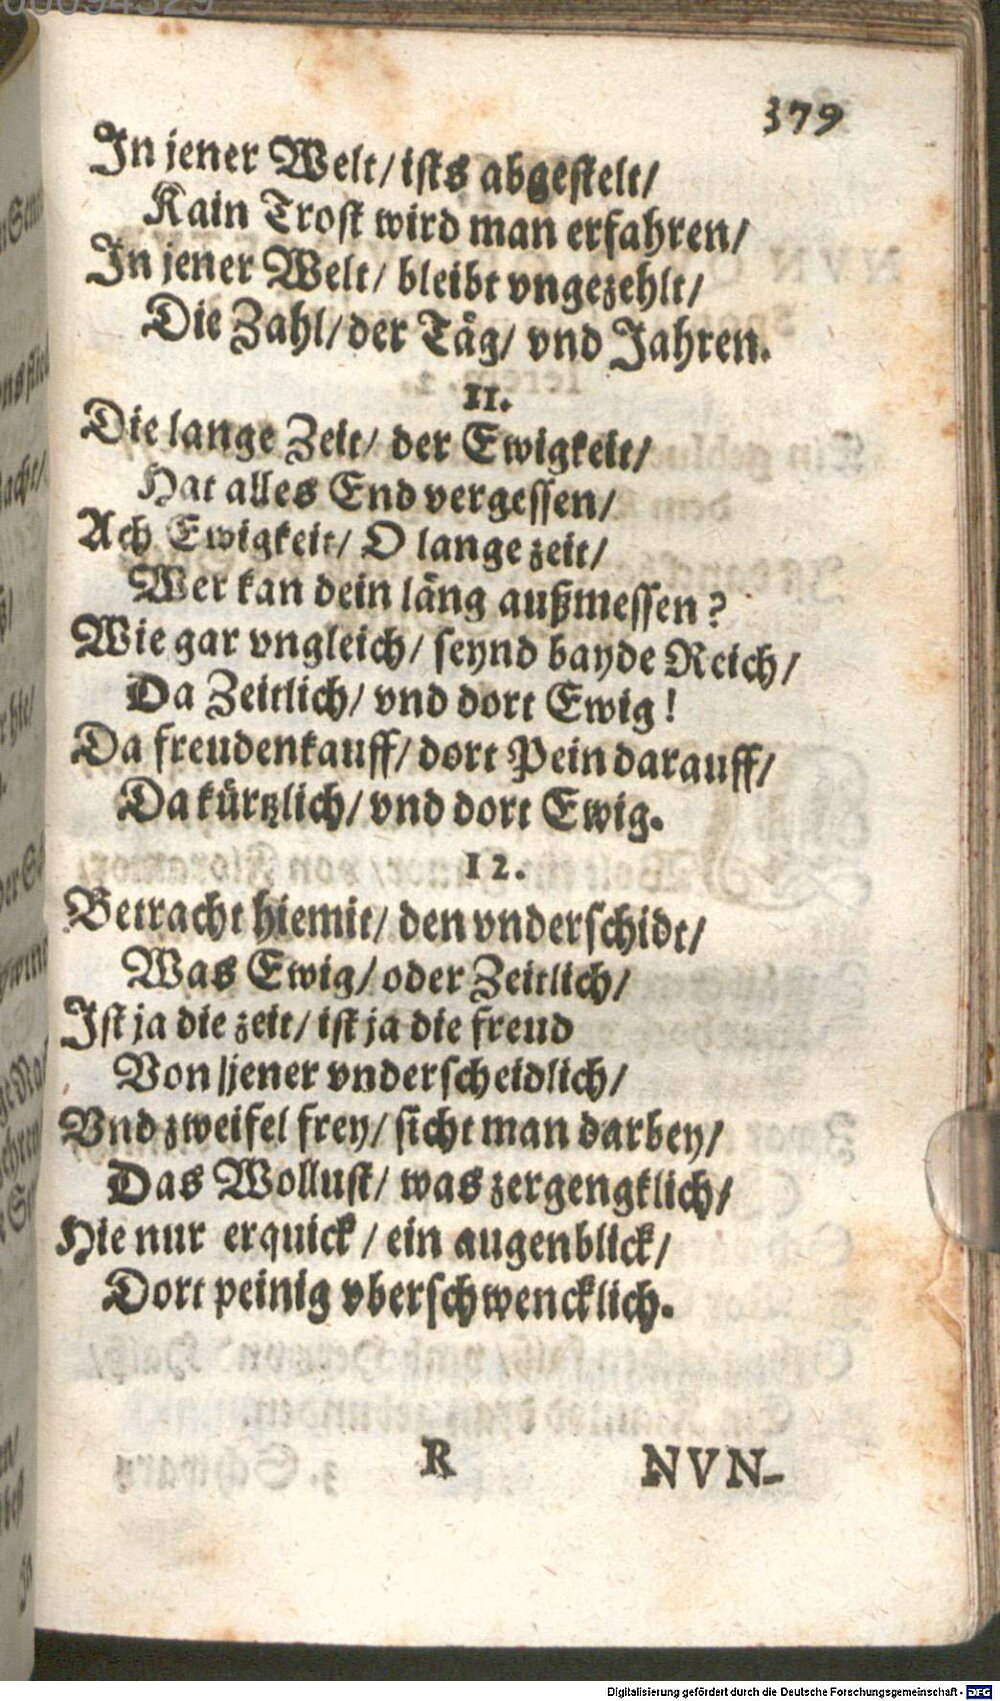 00094329
379
In jener Welt/ ists abgestelt/
Kain Trost wird man erfahren/
In jener Welt/ bleibt vngezehlt/
Die Zahl/ der Täg/ vnd Jahren.
11.
Die lange Zeit/ der Ewigkeit/
Hat alles End vergessen/
Ach Ewigkeit/ O lange zeit/
Wer kan dein läng außmessen?
Wie gar vngleich/ seynd bayde Reich/
Da Zeitlich/ vnd dort Ewig!
Da freudenkauff/ dort Pein darauff/
Da kürtzlich/ vnd dort Ewig.
12.
Betracht hiemit/ den vnderschidt/
Was Ewig/ oder Zeitlich/
Ist ja die zeit/ ist ja die freud
Von jener vnderscheidlich/
Vnd zweifel frey/ sicht man darbey/
Das Wollust/ was zergengklich/
Hie nur erquick/ ein augenblick/
Dort peinig vberschwencklich.
R NVN-
Digitalisierung gefördert durch die Deutsche Forschungsgemeinschaft - DFG